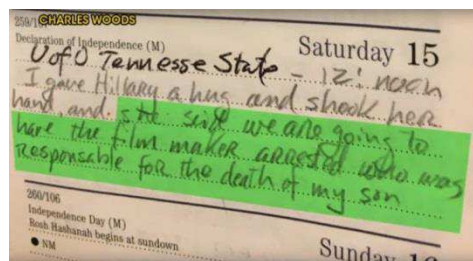 259/107
CHARLES WOODS
Declaration of Independence (M)
Saturday 15
U of O Tennesse State - 12: noon
I gave Hillary a hug and shook her
hand, and she said we are going to
have the film maker arrested who was
responsable for the death of my son
260/106
Independence Day (M)
Rosh Hashanah begins at sundown
NM
Sunday